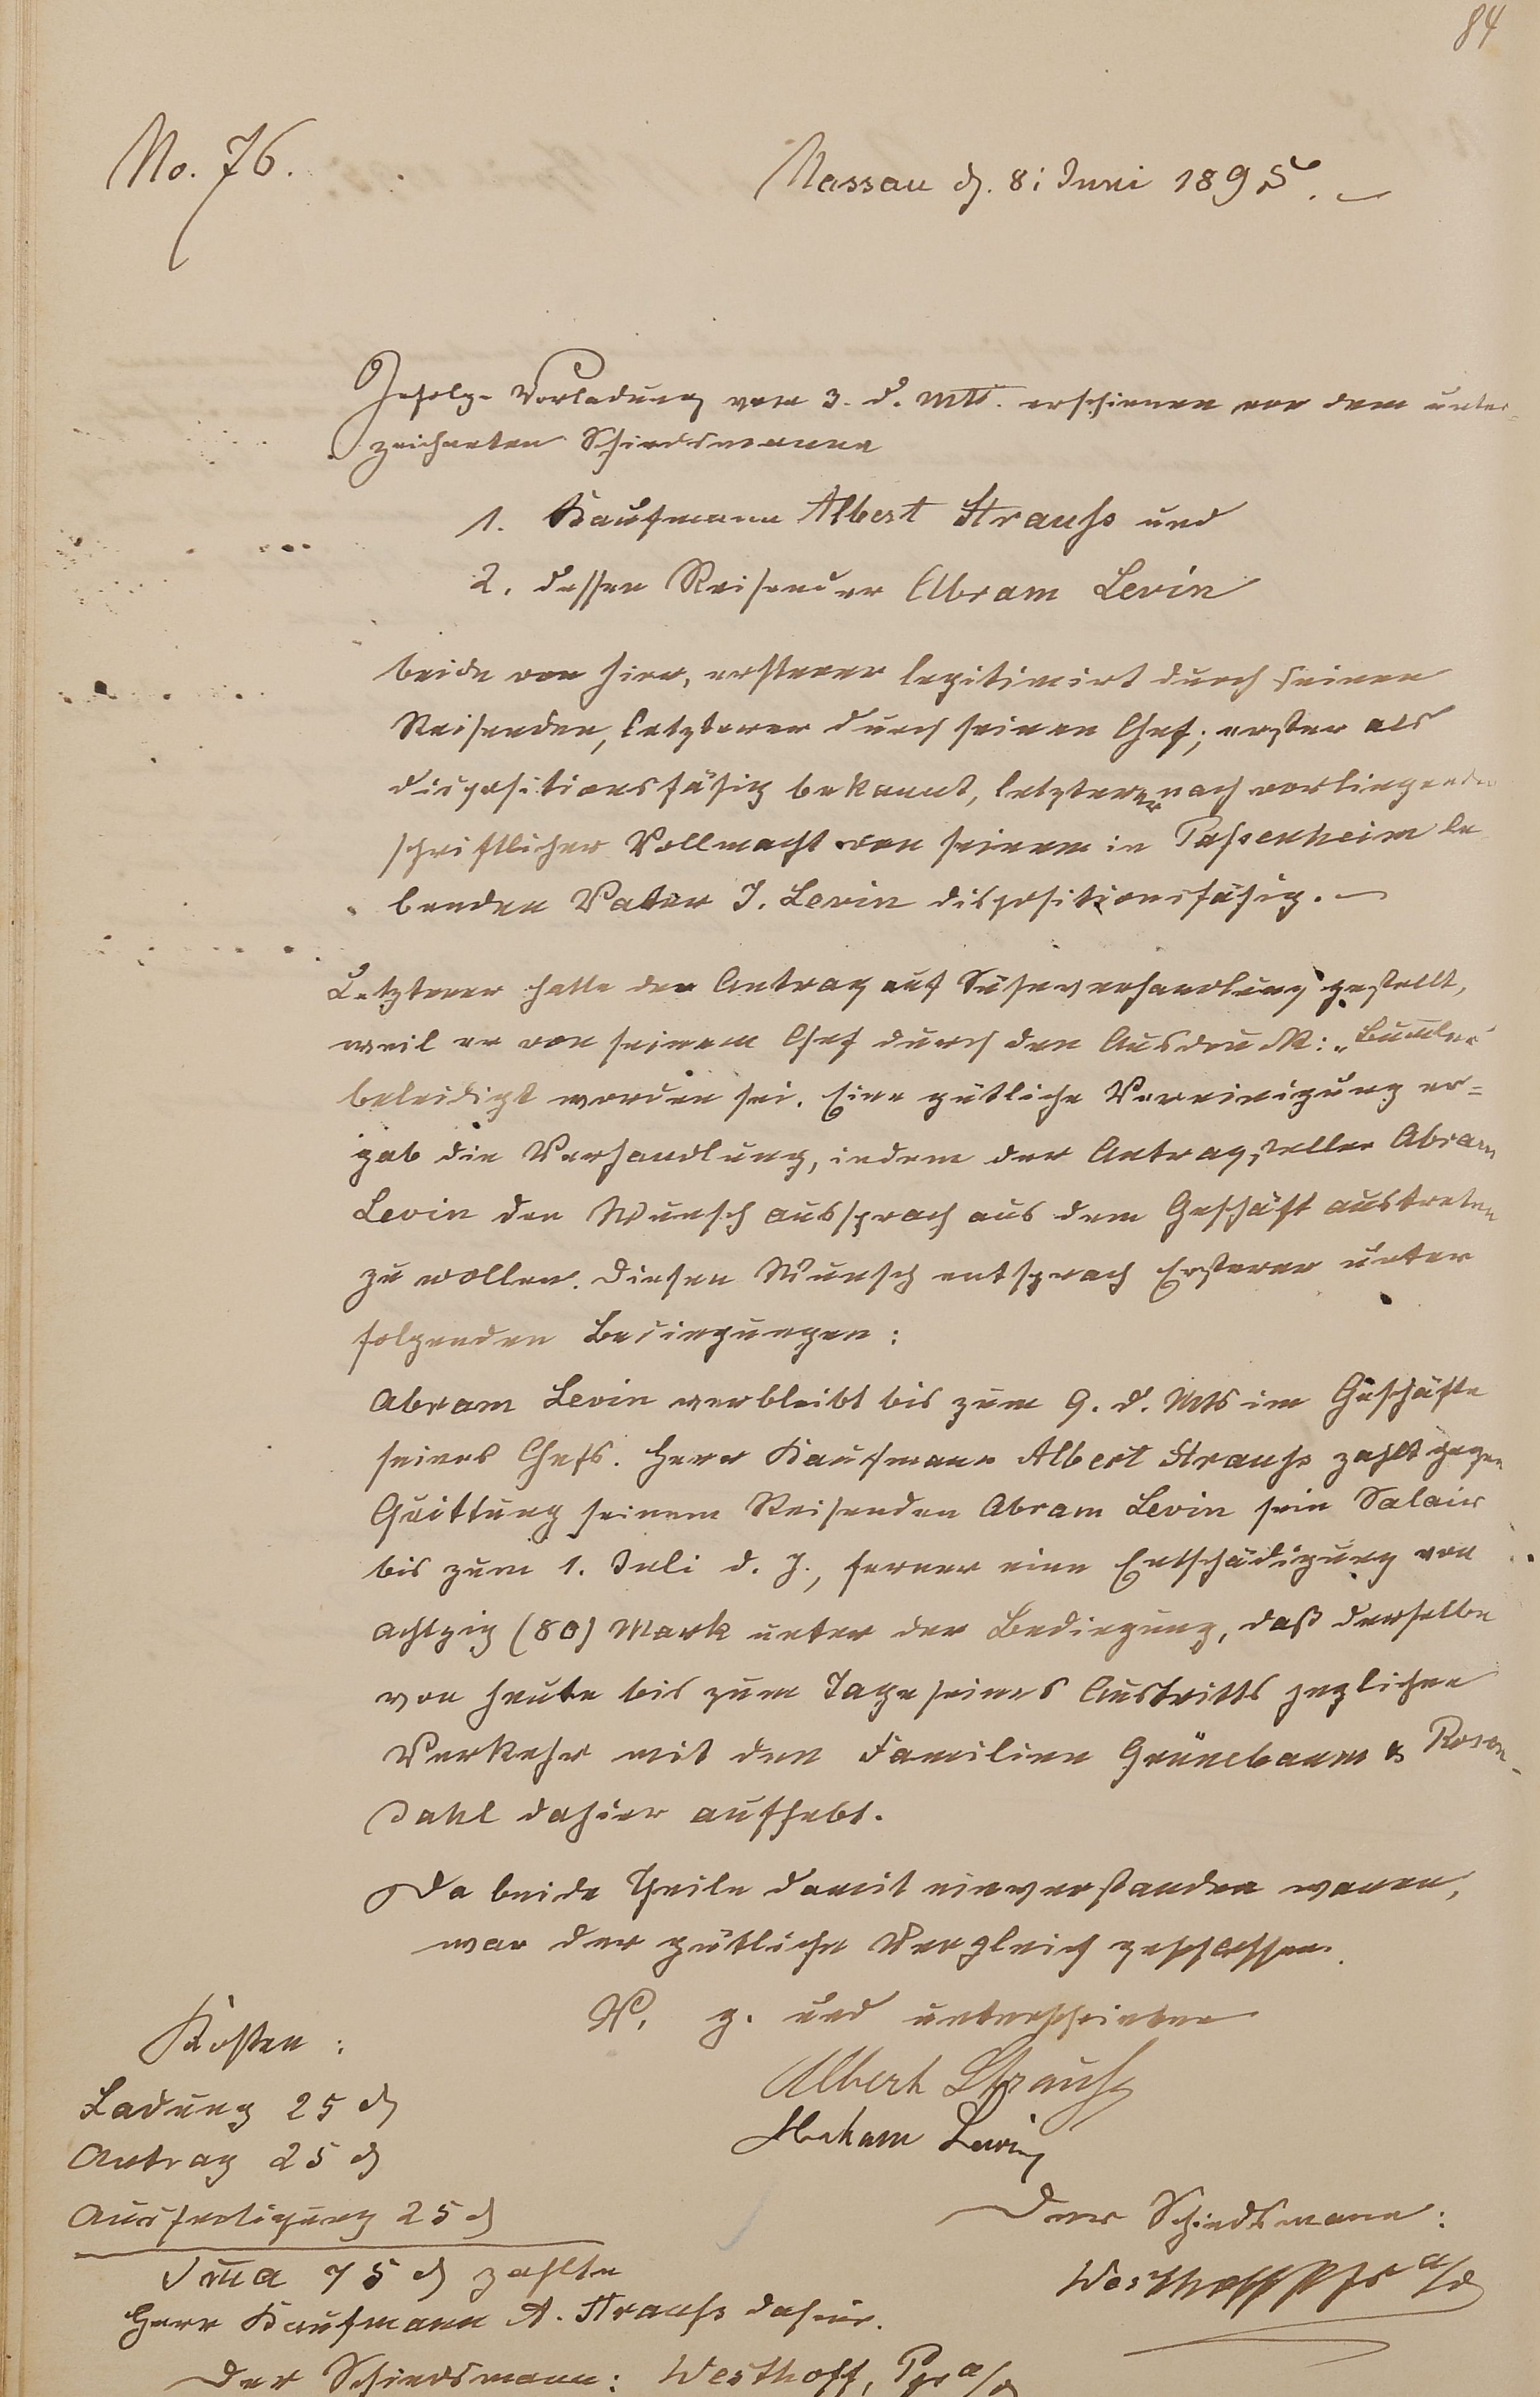 84
No. 76.
Nassau d. 8. Juni 1895.
Infolge Vorladung vom 3. d. Mts. erschienen vor dem unter-
zeichneten Schiedsmanne
1. Kaufmann Albert Strauß und
2. dessen Reisender Abram Levin
beide von hier, ersterer legitimirt durch seinen
Reisenden, letzterer durch seinen Chef; erster als
dispositionsfähig bekannt, letzterer nach vorliegender
schriftlicher Vollmacht von seinem in Passenheim le-
benden Vater J. Levin dispositionsfähig.
Letzterer hatte den Antrag auf Sühneverhandlung gestellt,
weil er von seinem Chef durch den Ausdruck: „Bummler“
beleidigt worden sei. Eine gütliche Vereinigung er=
gab die Verhandlung, indem der Antragsteller Abram
Levin den Wunsch aussprach aus dem Geschäft austreten
zu wollen. Diesen Wunsch entsprach Ersterer unter
folgenden Bedingungen:
Abram Levin verbleibt bis zum 9. d. Mts im Geschäfte
seines Chefs. Herr Kaufmann Albert Strauß zahlt gegen
Quittung seinem Reisenden Abram Levin sein Salair
bis zum 1. Juli d. J., ferner eine Entschädigung von
achtzig (80) Mark unter der Bedingung, daß derselbe
von heute bis zum Tage seines Austritts jeglichen
Verkehr mit den Familien Grünebaum & Rosen-
dahl dahier aufhebt.
Da beide Theile damit einverstanden waren,
war der gütliche Vergleich geschlossen.
V. g. und unterschrieben
Albert Strauß
Abraham Levin
Der Schiedsmann:
Westhoff Pfr a/d
Kosten:
Ladung 25 ₰
Antrag 25 ₰
Ausfertigung 25 ₰
Sma 75 ₰ zahlte
Herr Kaufmann A. Strauß dahier.
Der Schiedsmann: Westhoff, Pfr a/d